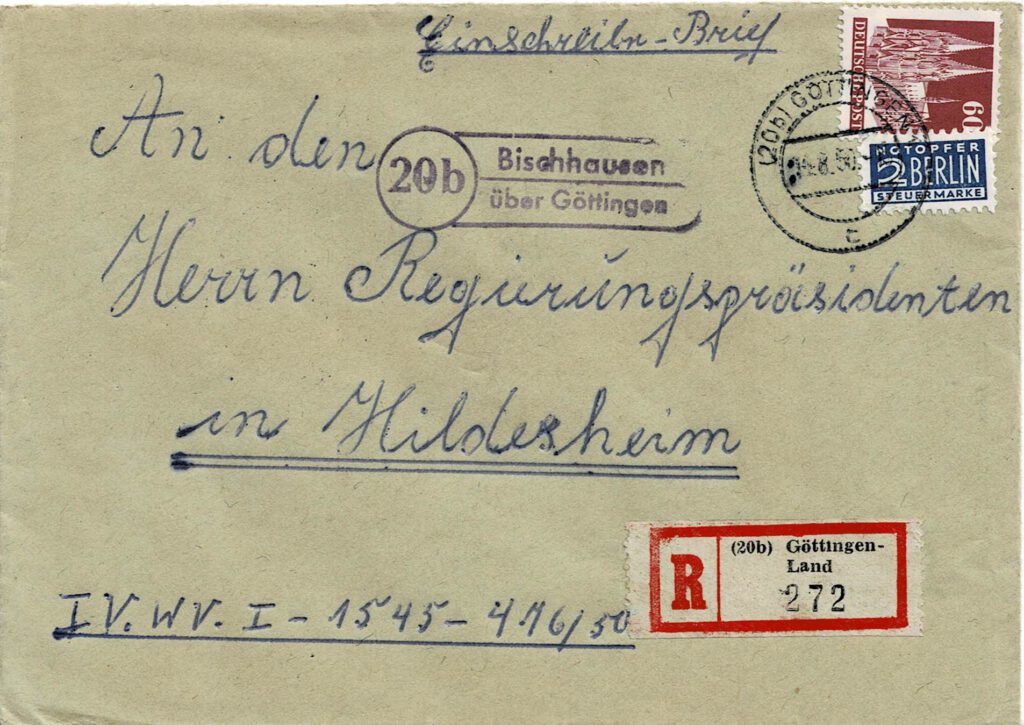 Einschreibe-Brief
DEUTSCHE POST
60
An den
20b
Bischhausen
über Göttingen
(20b) GÖTTINGEN
8.50
c
NOTOPFER
2 BERLIN
STEUERMARKE
Herrn Regierungspräsidenten
in Hildesheim
R
(20b) Göttingen-
Land
272
IV. WV. I - 1545 - 476/50